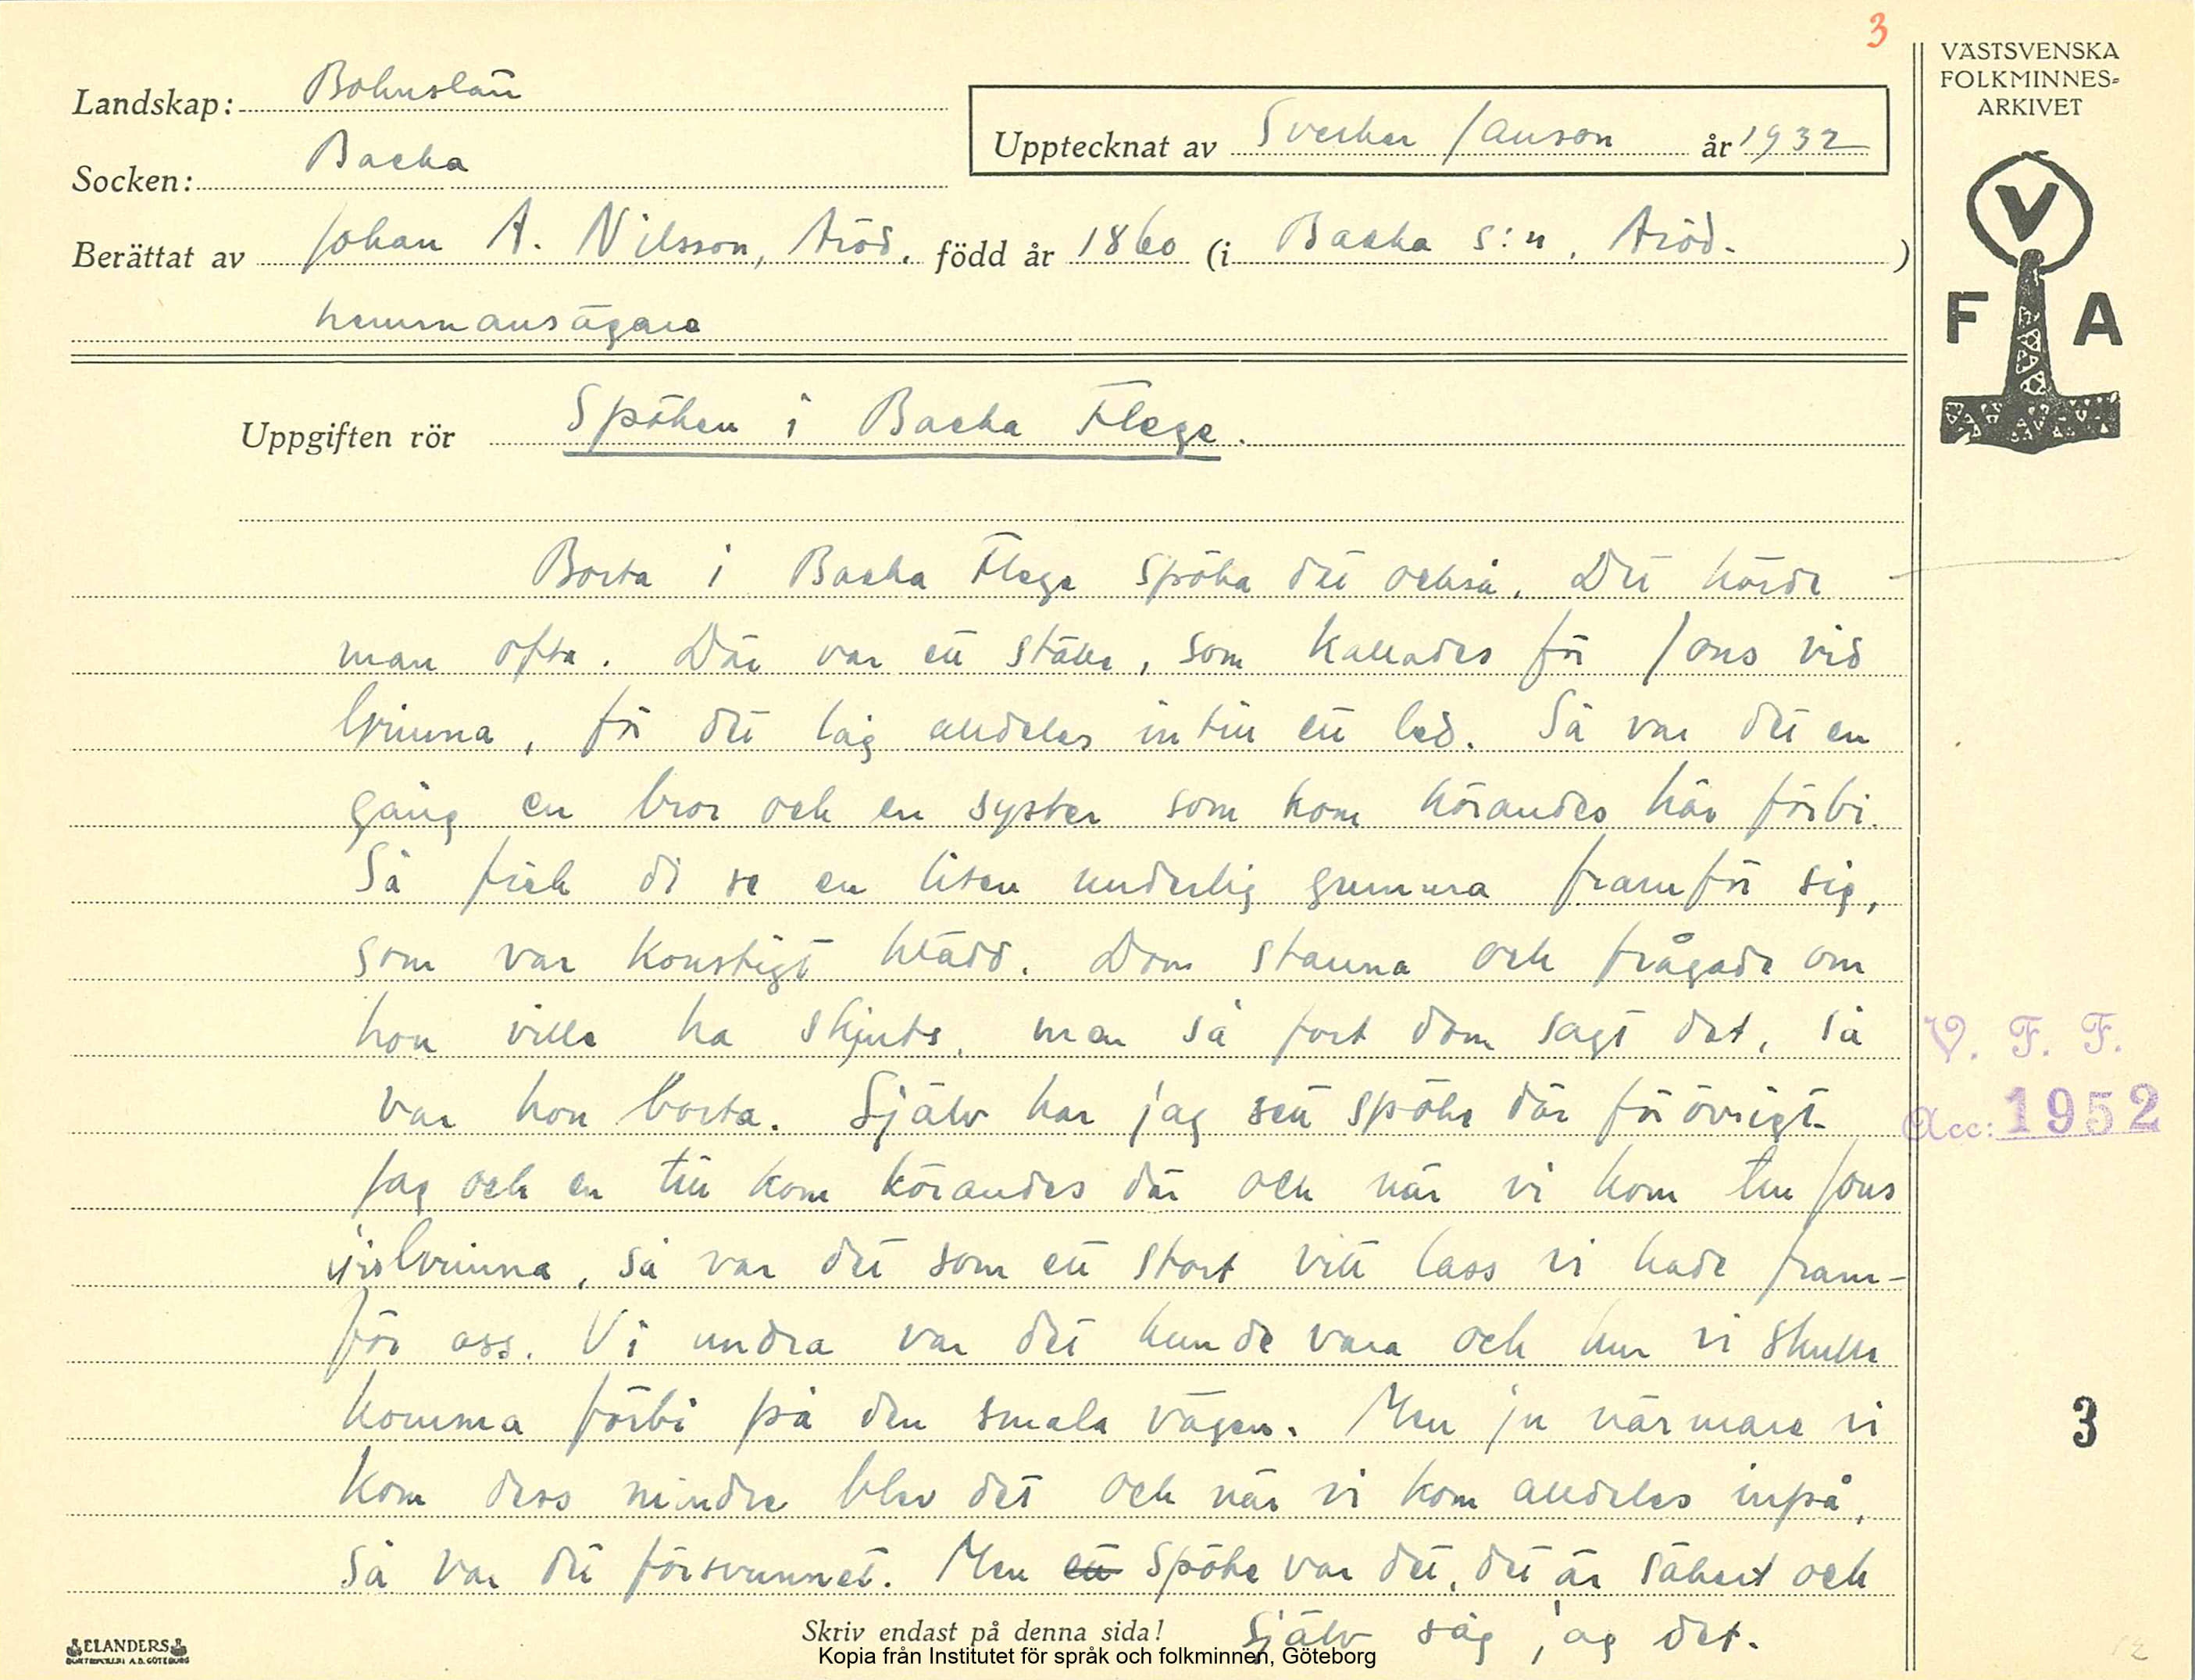 3
VÄSTSVENSKA
FOLKMINNES=
ARKIVET
Landskap: Bohuslän
Upptecknat av Sverker Janson år 1932
Socken: Backa
Berättat av Johan A. Nilsson, Aröd, född år 1860 (i Backa s:n, Aröd.)
hemmansägare
V
F A
Uppgiften rör Spöken i Backa Flege.
Borta i Backa Flege spöka det också. Det hörde
man ofta. Där var ett ställe, som kallades för Jons vid
lvinna, för det låg alldeles intill ett led. Så var det en
gång en bror och en syster som kom körandes här förbi.
Så fick di se en liten underlig gumma framför sig,
som var konstigt klädd. Dom stanna och frågade om
hon ville ha skjuts, men så fort dom sagt det, så
var hon borta. Själv har jag sett spöke där förövrigt.
Jag och en till kom körandes där och när vi kom till Jons
vislvinna, så var det som ett stort vitt lass vi hade fram-
för oss. Vi undra var det kunde vara och hur vi skulle
komma förbi på den smala vägen. Men ju närmare vi
kom dess mindre blev det och när vi kom alldeles inpå,
så var det försvunnet. Men ett spöke var det, det är säkert och
själv såg jag det.
V. F. F.
Acc: 1952
3
Skriv endast på denna sida!
ELANDERS
BOKTRYCKERI A.B. GÖTEBORG
Kopia från Institutet för språk och folkminnen, Göteborg
12